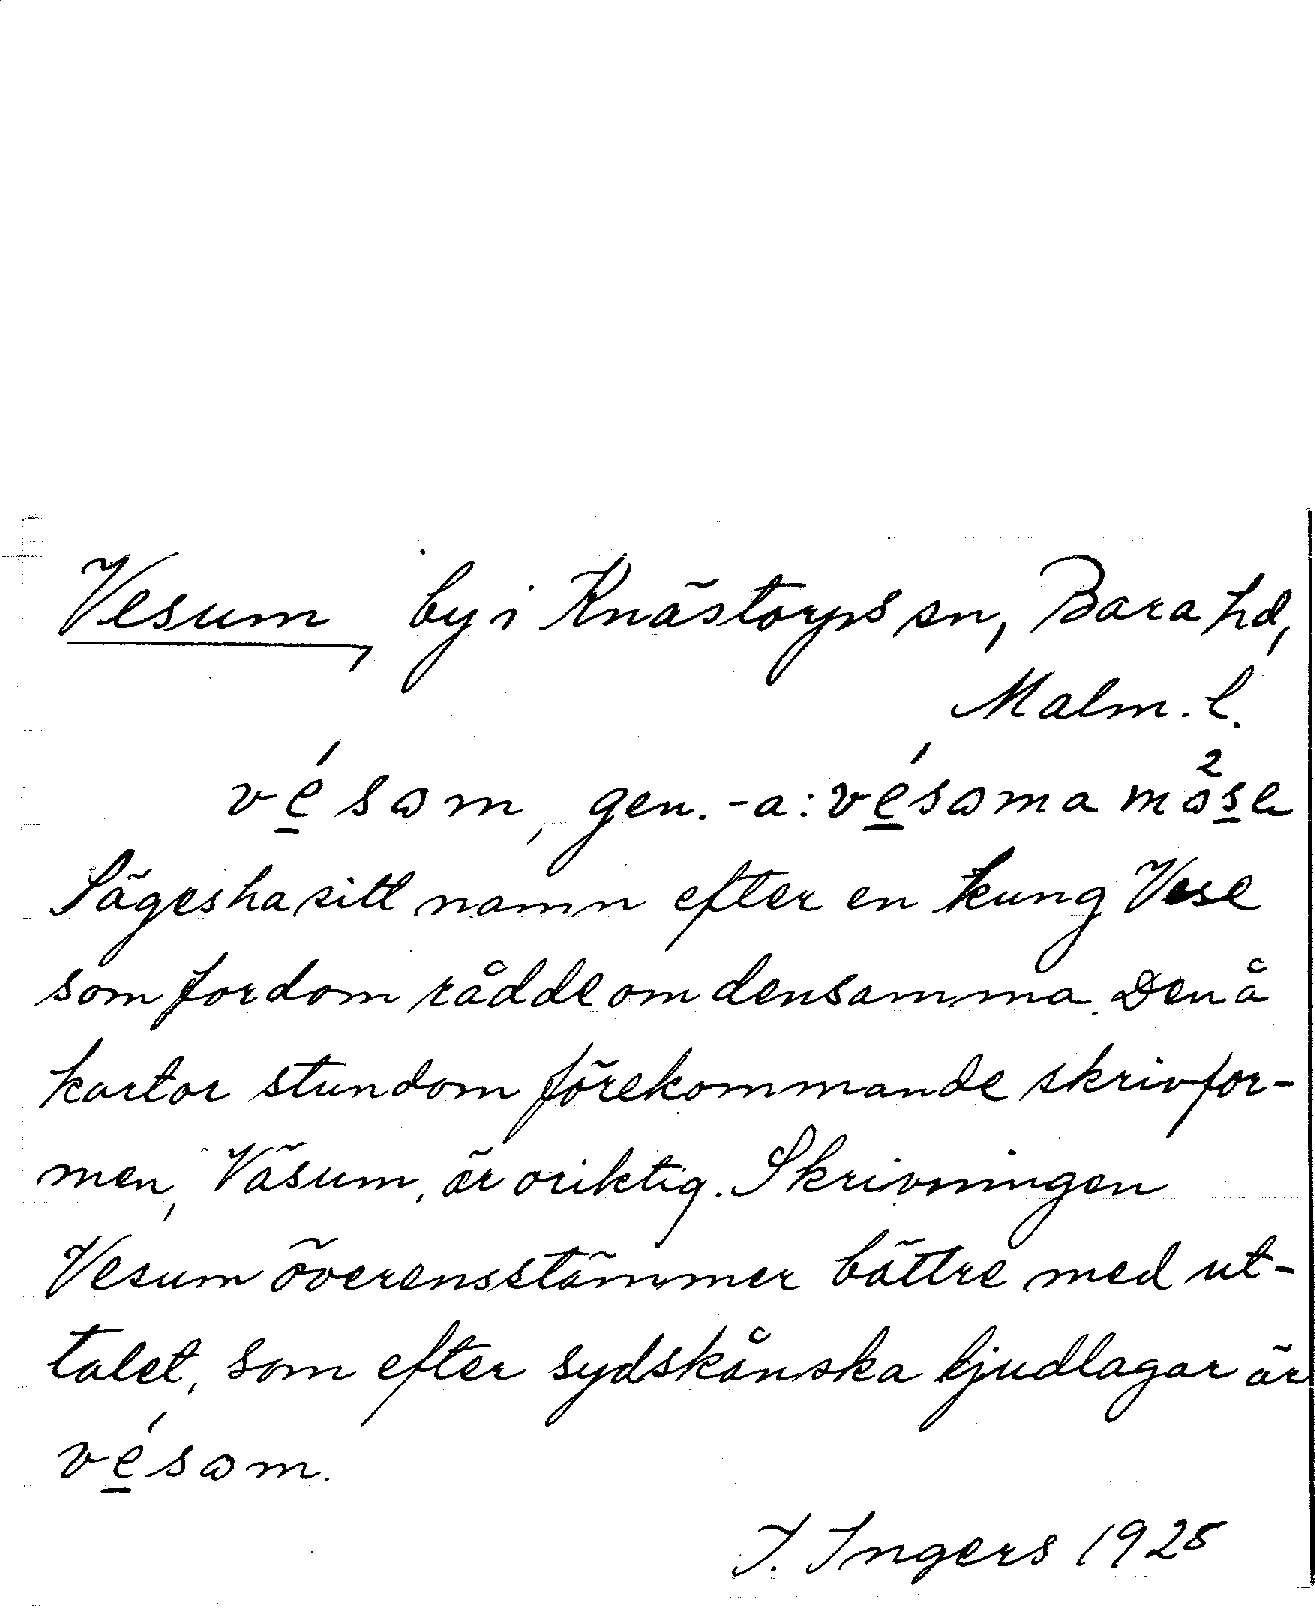 Vesum, by i Knästorps sn, Bara hd,
Malm. l.
vésom, gen. -a: vésoma möse
Säges ha sitt namn efter en kung Vese
som fordom rådde om densamma. Den å
kartor stundom förekommande skrivfor-
men, Väsum, är oriktig. Skrivningen
Vesum överensstämmer bättre med ut-
talet, som efter sydskånska ljudlagar är
vésom.
I. Ingers 1925